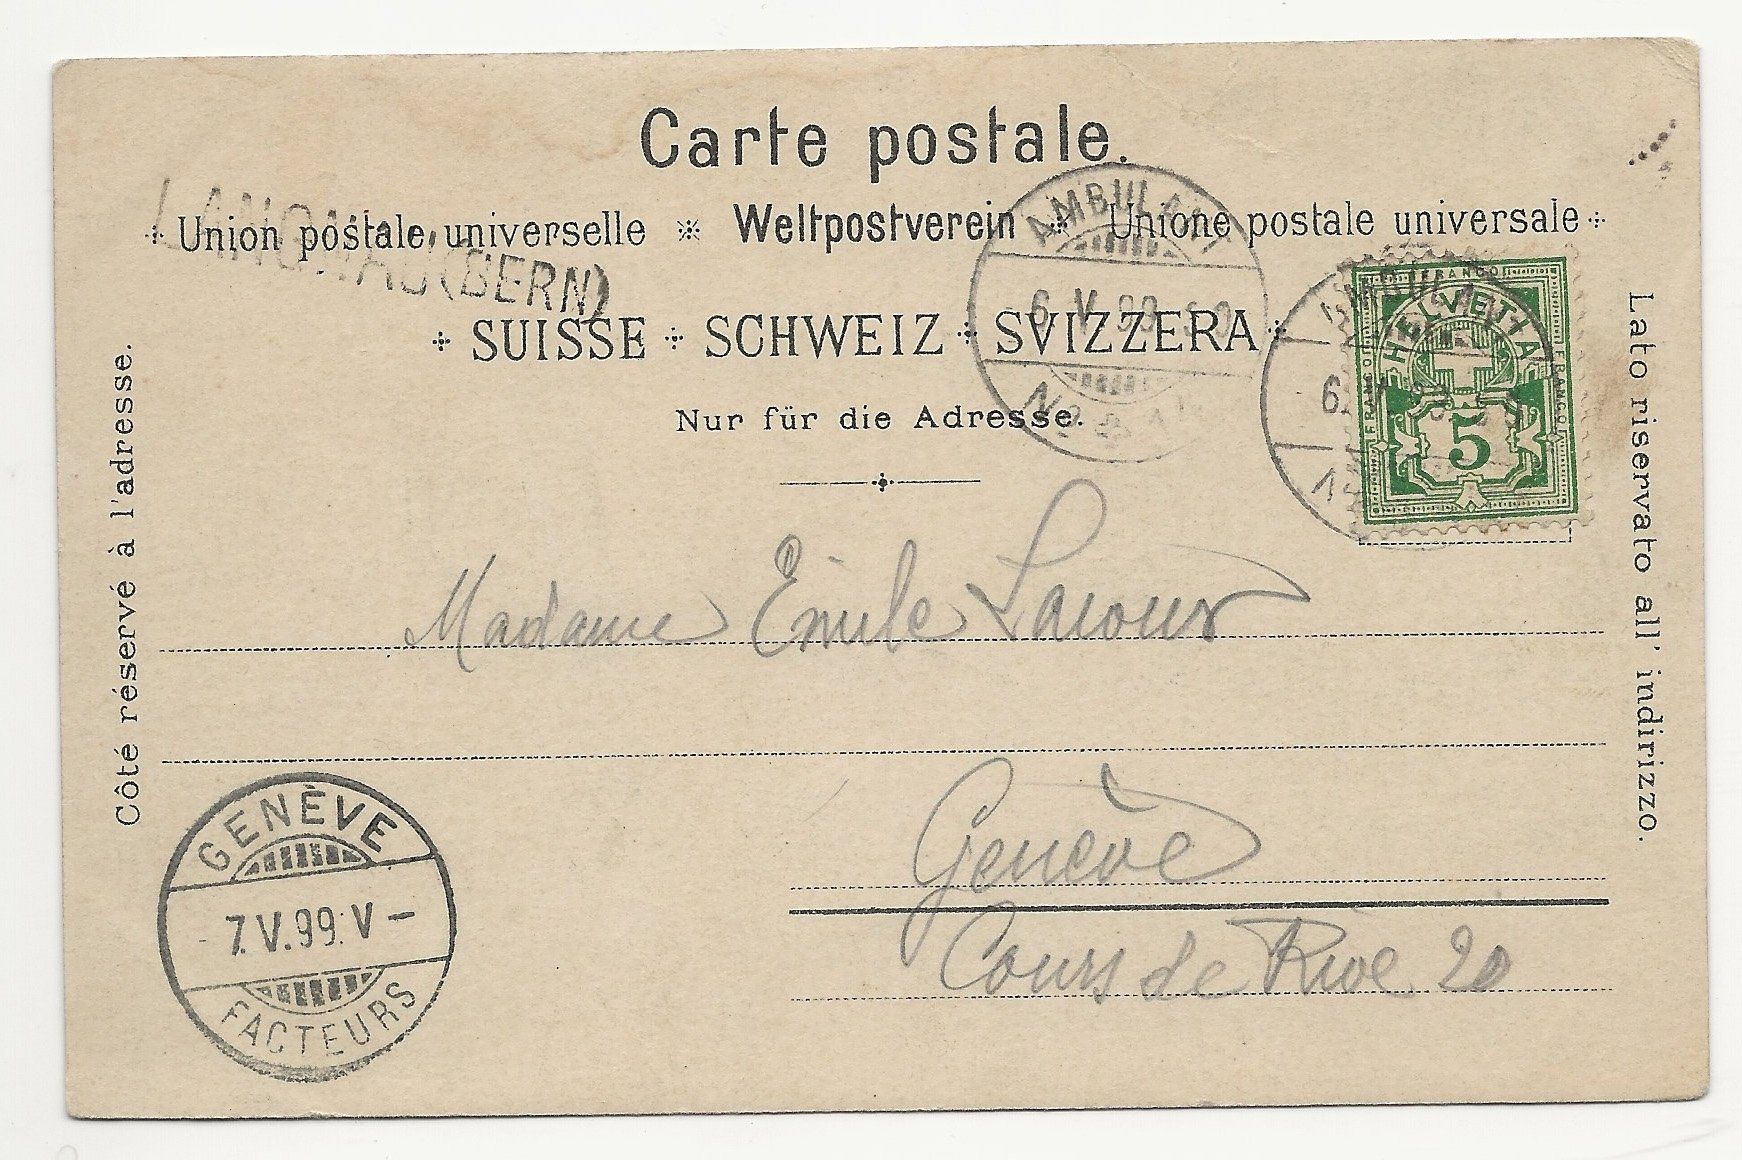 Carte postale.
Union postale universelle ※ Weltpostverein ※ Unione postale universale
LANGNAU (BERN)
SUISSE SCHWEIZ SVIZZERA
Nur für die Adresse.
Côté réservé à l'adresse.
Lato riservato all' indirizzo.
AMBULANT
6 V 99
AMBULANT
6
FRANCO
HELVETIA
FRANCO
FRANCO
5
Madame Emile
Genève
Cours de Rive 20
GENÈVE
7. V. 99. V –
FACTEURS